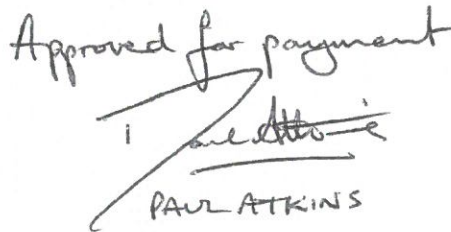 Approved for payment
Paul Atkins
PAUL ATKINS